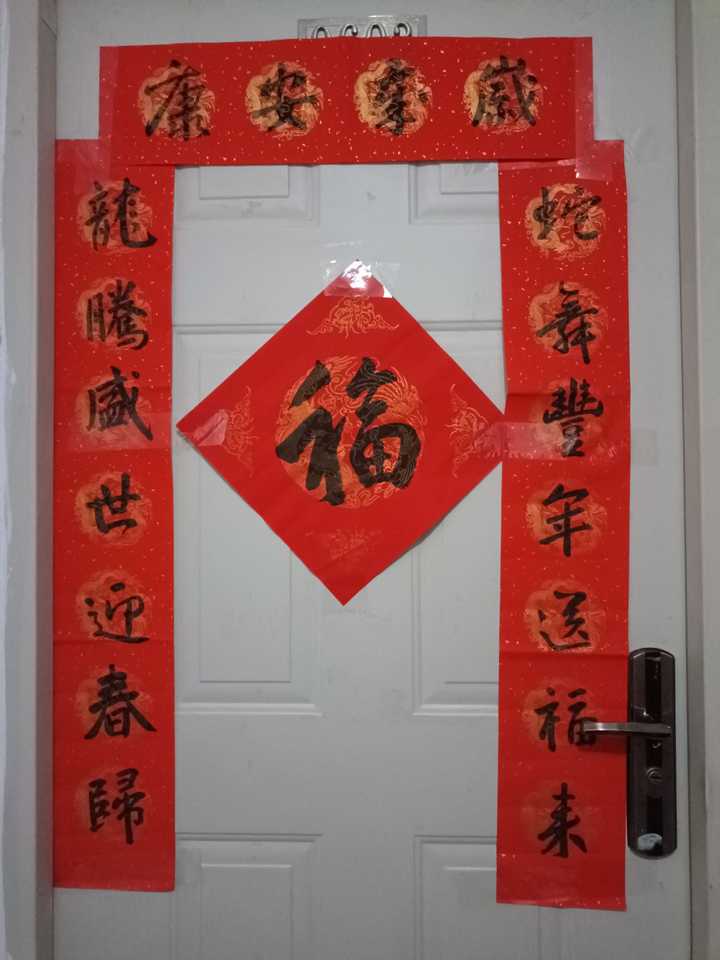 歲歲安康
蛇舞豐年送福来
龍騰盛世迎春歸
福